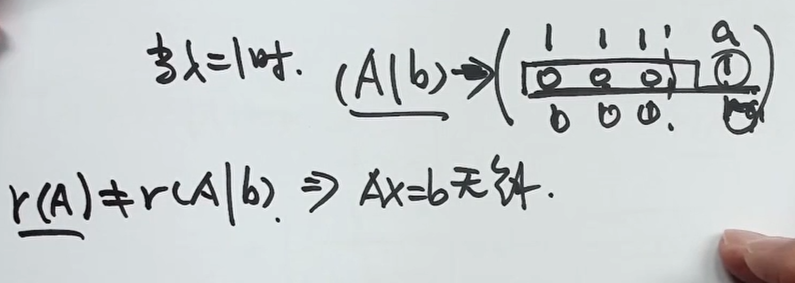 当λ=1时. (A|b)→(1 1 1 | a
0 0 0 | 1
0 0 0 |  )
r(A)≠r(A|b). ⇒ Ax=b无解.